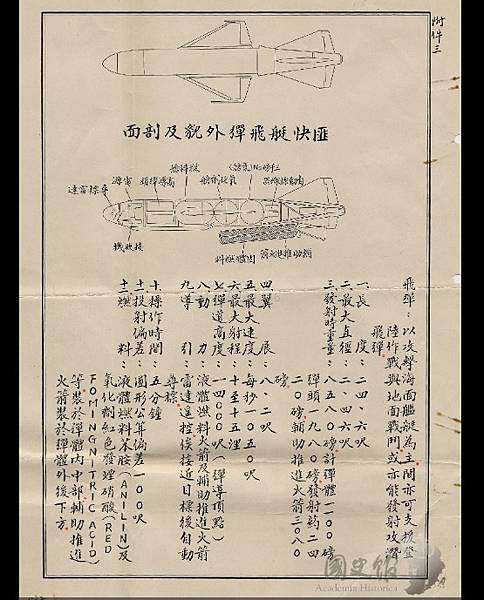 附件三
匪快艇飛彈外貌及剖面
電源
高爆彈頭
燃料艙
接收機
固體燃料
輔助推進火箭
飛彈：以攻擊海面艦艇為主間亦可支援登
陸作戰與地面戰鬥或亦能發射攻潛
飛彈
一長度：二四.六呎
二最大直徑：二.四六呎
三發射時重量：八五八〇磅計彈體一一〇〇磅
彈頭一九八〇磅發射藥二四
二〇磅輔助推進火箭三〇八〇
磅
四翼展：八.二呎
五最大速度：每秒一〇五〇呎
六最大射程：十至十五浬
七彈道高度：一四〇〇〇呎（彈導頂點）
八動力：液體燃料火箭及輔助推進火箭
九導引：雷達遙控俟接近目標後自動
尋標
十操作時間：五分鐘
十一投射偏差：圓形公算偏差一〇〇呎
十二燃料：液體燃料苯胺（ANILIN）及
氧化劑紅色發煙硝酸（RED
FOMINGNITRIC ACID）
等裝於彈體內中部輔助推進
火箭裝於彈體外後下方。
國史館
Academia Historica